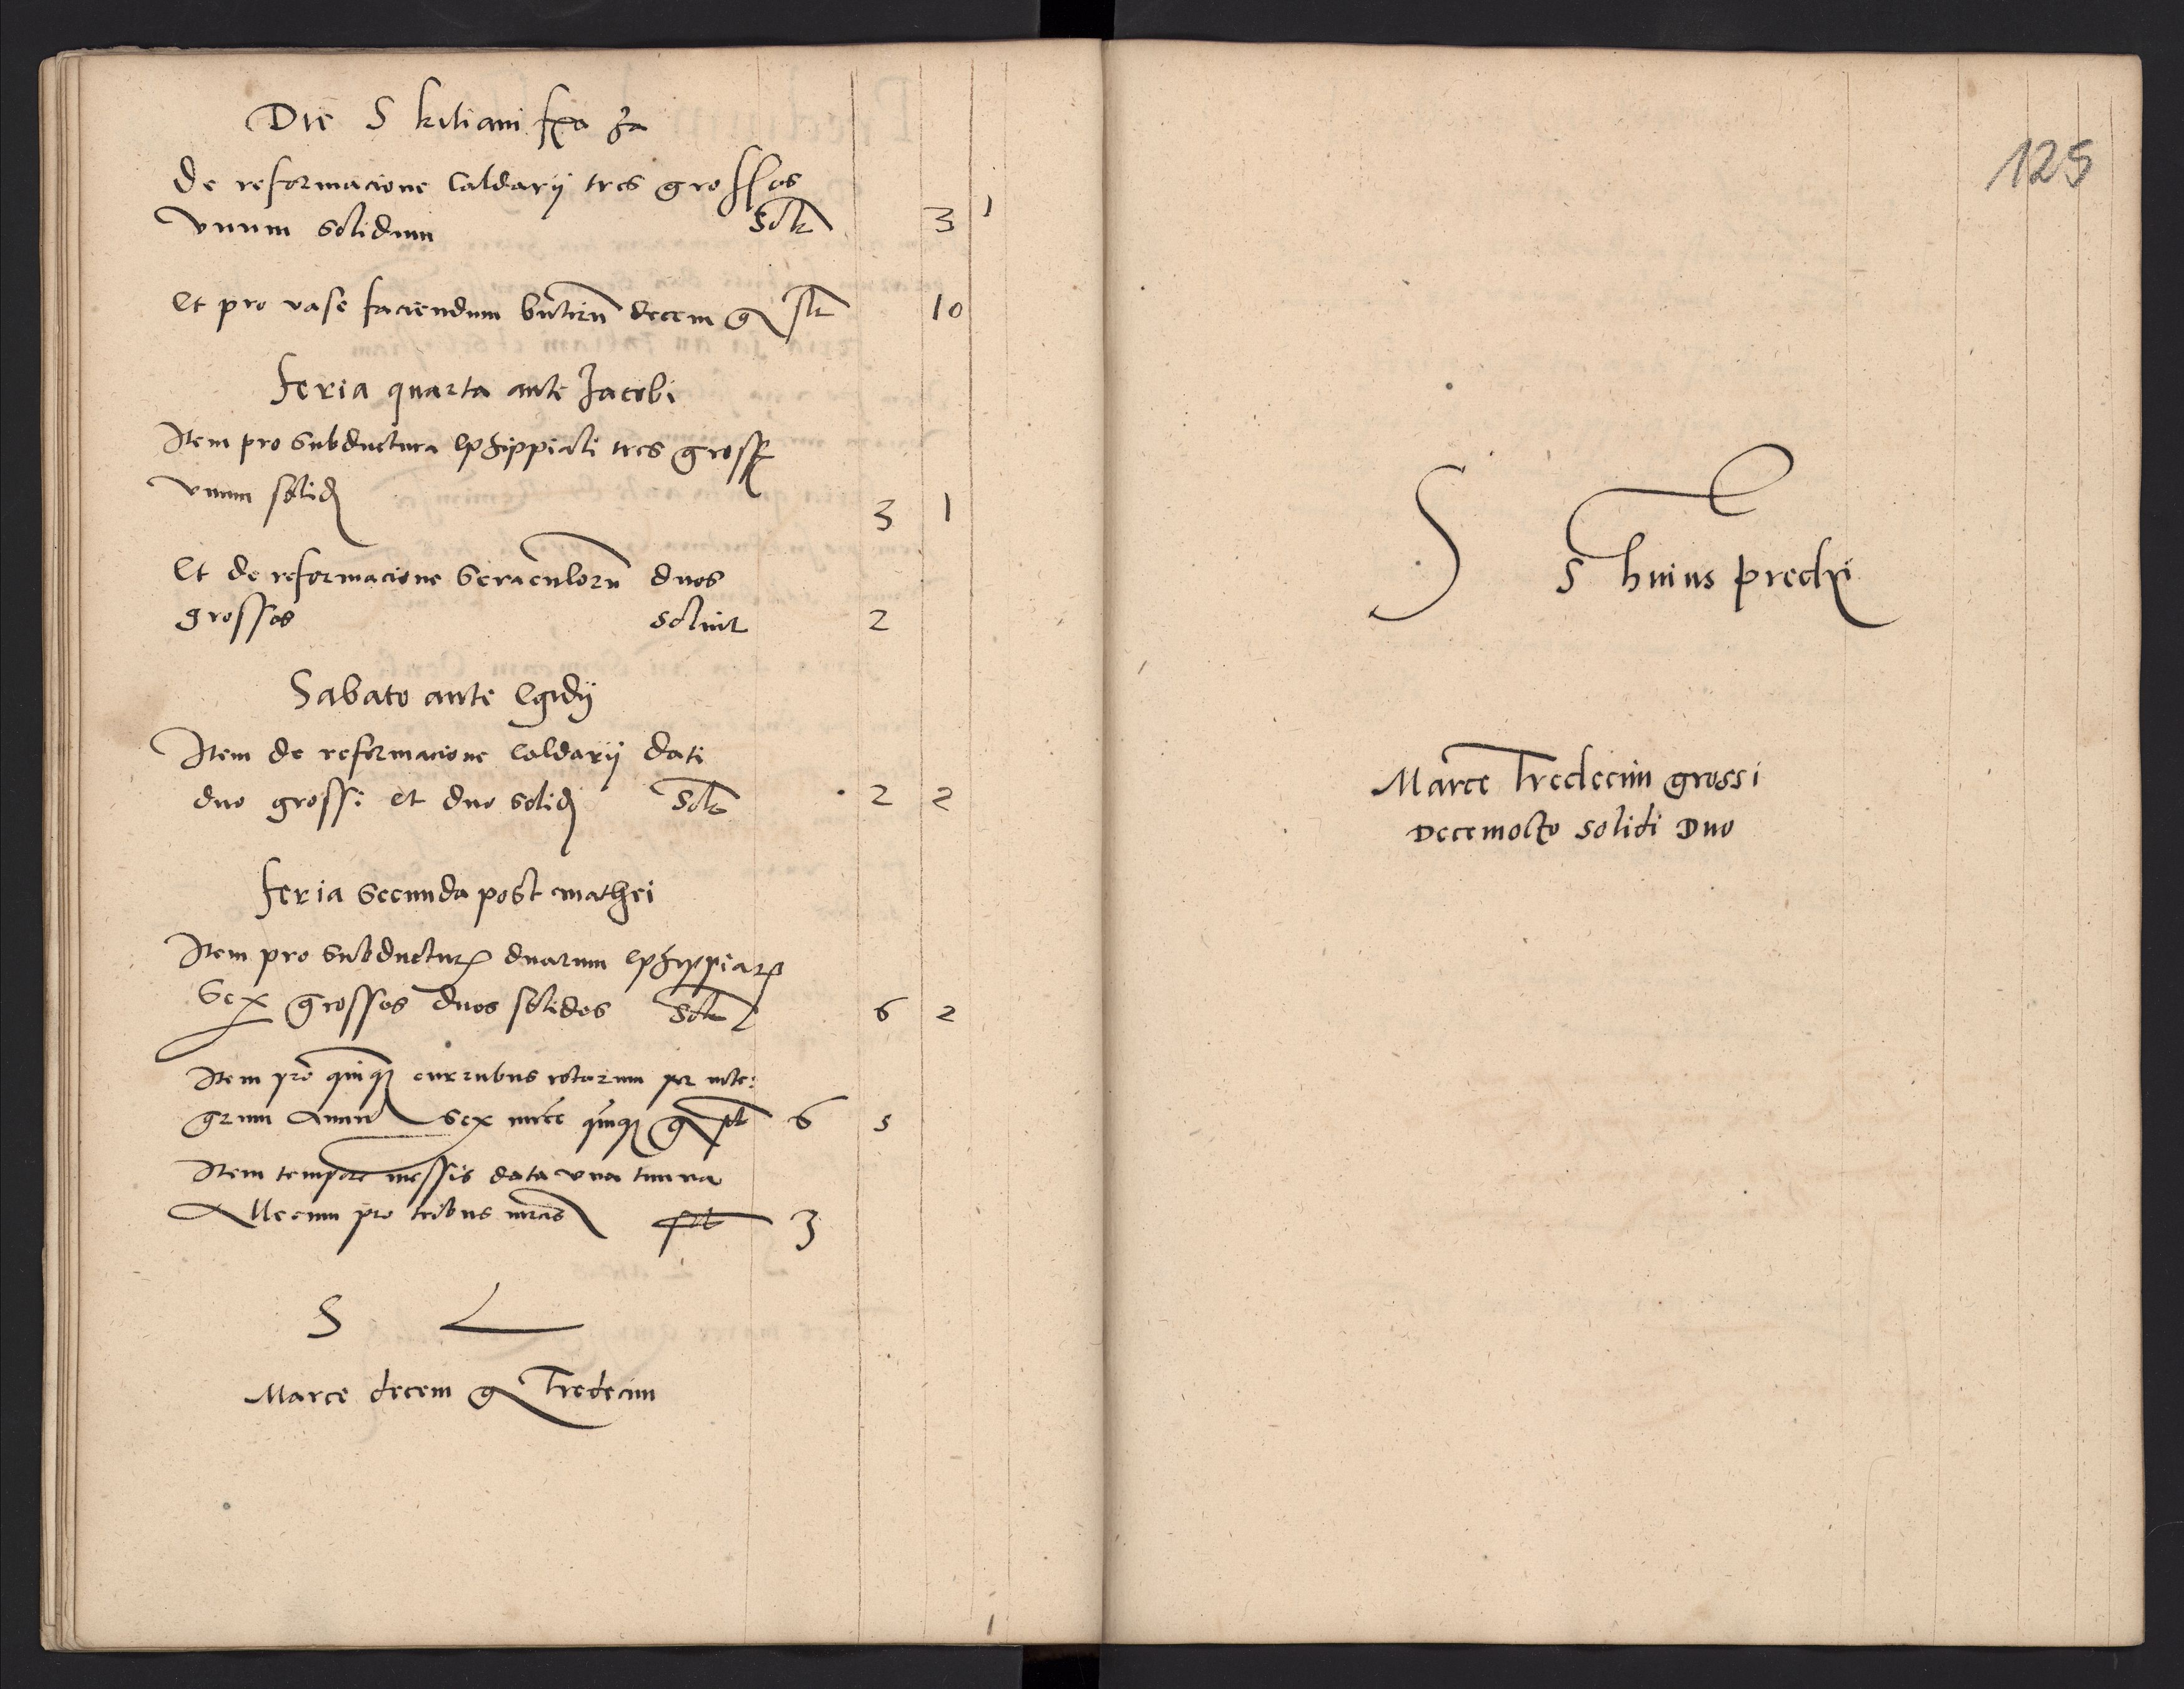 Die S kiliani fᵃ 3a
De reformacione Caldarij tres grossos
vnum solidum solt 3 1
Et pro vase faciendum butirū decem g slt 10
Feria quarta ante Jacobi
Item pro subductura Ephippiali tres gross
vnum solid 3 1
Et de reformacione Seraculorū duos
grossos soluit 2
Sabato ante Egidij
Item de reformacione Caldarij dati
duo grossi et duo solid solt 2 2
Feria Secunda post mathei
Item pro subductur duarum Ephippiar
Sex grossos duos solidos solt 6 2
Item pro quinq curribus rotarum per inte:
grum Annū sex mrce quinq g slt 6 5
Item tempore messis data vna tunna
Allecum pro tribus mrcis slt 3
S L
Marce decem g Tredecim
125
S S huius predij
Marce Tredecim grossi
Decemocto solidi Duo